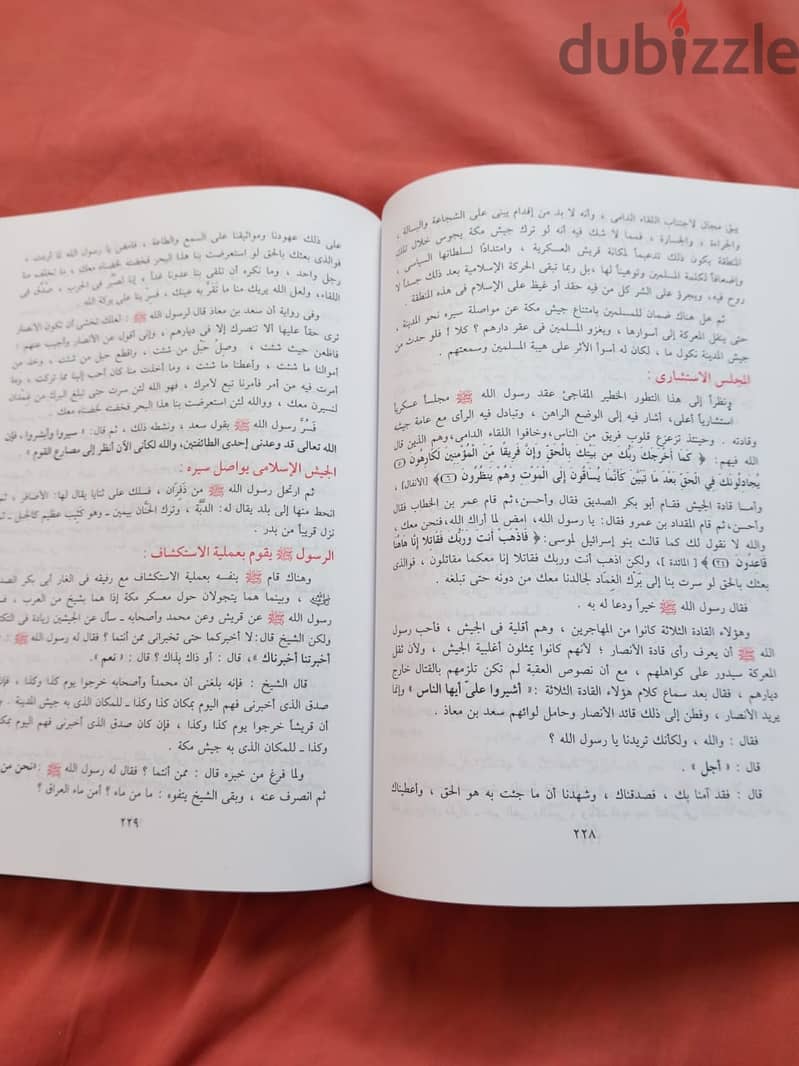 dubizzle
يبق مجال لاجتناب اللقاء الدامى ، وأنه لا بد من إقدام يبنى على الشجاعة والبسالة ،
والجراءة ، والجسارة ، فمما لا شك فيه أنه لو ترك جيش مكة يجوس خلال تلك
المنطقة يكون ذلك تدعيماً لمكانة قريش العسكرية ، وامتداداً لسلطانها السياسى ،
وإضعافاً لكلمة المسلمين وتوهيناً لها ،بل ربما تبقى الحركة الإسلامية بعد ذلك جسداً لا
روح فيه، ويجرؤ على الشر كل من فيه حقد أو غيظ على الإسلام فى هذه المنطقة .
ثم هل هناك ضمان للمسلمين بامتناع جيش مكة عن مواصلة سيره نحو المدينة ,
حتى ينقل المعركة إلى أسوارها ، ويغزو المسلمين فى عقر دارهم ؟ كلا ! فلو حدث من
جيش المدينة نكول ما ، لكان له أسوأ الأثر على هيبة المسلمين وسمعتهم .
المجلس الاستشارى :
ونظراً إلى هذا التطور الخطير المفاجئ عقد رسول الله ﷺ مجلساً عسكرياً
استشارياً أعلى، أشار فيه إلى الوضع الراهن ، وتبادل فيه الرأى مع عامة جيشه
وقادته . وحينئذ تزعزع قلوب فريق من الناس،وخافوا اللقاء الدامى،وهم الذين قال
الله فيهم: ﴿ كَمَا أَخْرَجَكَ رَبُّكَ مِنْ بَيْتِكَ بِالْحَقِّ وَإِنَّ فَرِيقًا مِّنَ الْمُؤْمِنِينَ لَكَارِهُونَ (٥)
يُجَادِلُونَكَ فِي الْحَقِّ بَعْدَ مَا تَبَيَّنَ كَأَنَّمَا يُسَاقُونَ إِلَى الْمَوْتِ وَهُمْ يَنظُرُونَ (٦)﴾ [الأنفال] ،
وأمـا قادة الجيش فقـام أبو بكر الصديق فقال وأحسن،ثم قام عمر بن الخطاب فقال
وأحسن،ثم قام المقداد بن عمرو فقال: يا رسول الله، امض لما أراك الله،فنحن معك ،
والله لا نقول لك كما قالت بنو إسرائيل لموسى:﴿ فَاذْهَبْ أَنتَ وَرَبُّكَ فَقَاتِلا إِنَّا هَاهُنَا
قَاعِدُونَ (٢٤)﴾ [ المائدة ] ، ولكن اذهب أنت وربك فقاتلا إنا معكما مقاتلون ، فوالذى
بعثك بالحق لو سرت بنا إلى بَرْك الغِمَاد لجالدنا معك من دونه حتى تبلغه .
فقال رسول الله ﷺ خيراً ودعا له به .
وهؤلاء القادة الثلاثة كانوا من المهاجرين ، وهم أقلية فى الجيش ، فأحب رسول
الله ﷺ أن يعرف رأى قادة الأنصار ؛ لأنهم كانوا يمثلون أغلبية الجيش ، ولأن ثقل
المعركة سيدور على كواهلهم ، مع أن نصوص العقبة لم تكن تلزمهم بالقتال خارج
ديارهم ، فقال بعد سماع كلام هؤلاء القادة الثلاثة :« أشيروا علىّ أيها الناس » وإنما
يريد الأنصار ، وفطن إلى ذلك قائد الأنصار وحامل لوائهم سعد بن معاذ .
فقال : والله ، ولكأنك تريدنا يا رسول الله ؟
قال : « أجل » .
قال : فقد آمنا بك ، فصدقناك ، وشهدنا أن ما جئت به هو الحق ، وأعطيناك
٢٢٨
على ذلك عهودنا ومواثيقنا على السمع والطاعة ، فامض يا رسول الله لما أردت ،
فوالذى بعثك بالحق لو استعرضت بنا هذا البحر فخضته لخضناه معك ، ما تخلف منا
رجل واحد ، وما نكره أن تلقى بنا عدونا غداً ، إنا لصُبُر فى الحرب ، صُدُق فى
اللقاء، ولعل الله يريك منا ما تَقَرُّ به عينك ، فسر بنا على بركة الله .
وفى رواية أن سعد بن معاذ قال لرسول الله ﷺ : لعلك تخشى أن تكون الأنصار
ترى حقاً عليها ألا تنصرك إلا فى ديارهم ، وإنى أقول عن الأنصار وأجيب عنهم :
فاظعن حيث شئت ، وصِلْ حَبْل من شئت ، واقطع حبل من شئت ، وخذ من
أموالنا ما شئت ، وأعطنا ما شئت ، وما أخذت منا كان أحب إلينا مما تركت ، وما
أمرت فيه من أمر فأمرنا تبع لأمرك ، فوالله لئن سرت حتى تبلغ البرك من غمدان
لنسيرن معك ، ووالله لئن استعرضت بنا هذا البحر فخضته لخضناه معك .
فَسُرَّ رسول الله ﷺ بقول سعد ، ونشطه ذلك ، ثم قال: « سيروا وأبشروا، فإن
الله تعالى قد وعدنى إحدى الطائفتين، والله لكأنى الآن أنظر إلى مصارع القوم » .
الجيش الإسلامى يواصل سيره :
ثم ارتحل رسول الله ﷺ من ذَفِرَان، فسلك على ثنايا يقال لها: الأصافر ، ثم
انحط منها إلى بلد يقال له: الدَّبَّة ، وترك الحَنَّان بيمين ـ وهو كثيب عظيم كالجبل ـ ثم
نزل قريباً من بدر .
الرسول ﷺ يقوم بعملية الاستكشاف :
وهناك قام ﷺ بنفسه بعملية الاستكشاف مع رفيقه فى الغار أبى بكر الصد
، وبينما هما يتجولان حول معسكر مكة إذا هما بشيخ من العرب ، ف
رسول الله ﷺ عن قريش وعن محمد وأصحابه ـ سأل عن الجيشين زيادة فى التكت
ولكن الشيخ قال: لا أخبركما حتى تخبرانى ممن أنتما ؟ فقال له رسول الله ﷺ : «
أخبرتنا أخبرناك »، قال : أو ذاك بذاك ؟ قال : « نعم ».
قال الشيخ : فإنه بلغنى أن محمداً وأصحابه خرجوا يوم كذا وكذا ، فإن كان
صدق الذى أخبرنى فهم اليوم بمكان كذا وكذا ـ للمكان الذى به جيش المدينة . و
أن قريشاً خرجوا يوم كذا وكذا ، فإن كان صدق الذى أخبرنى فهم اليوم بمكا
وكذا ـ للمكان الذى به جيش مكة .
ولما فرغ من خبره قال : ممن أنتما ؟ فقال له رسول الله ﷺ :«نحن من
ثم انصرف عنه ، وبقى الشيخ يتفوه : ما من ماء ؟ أمن ماء العراق ؟
٢٢٩